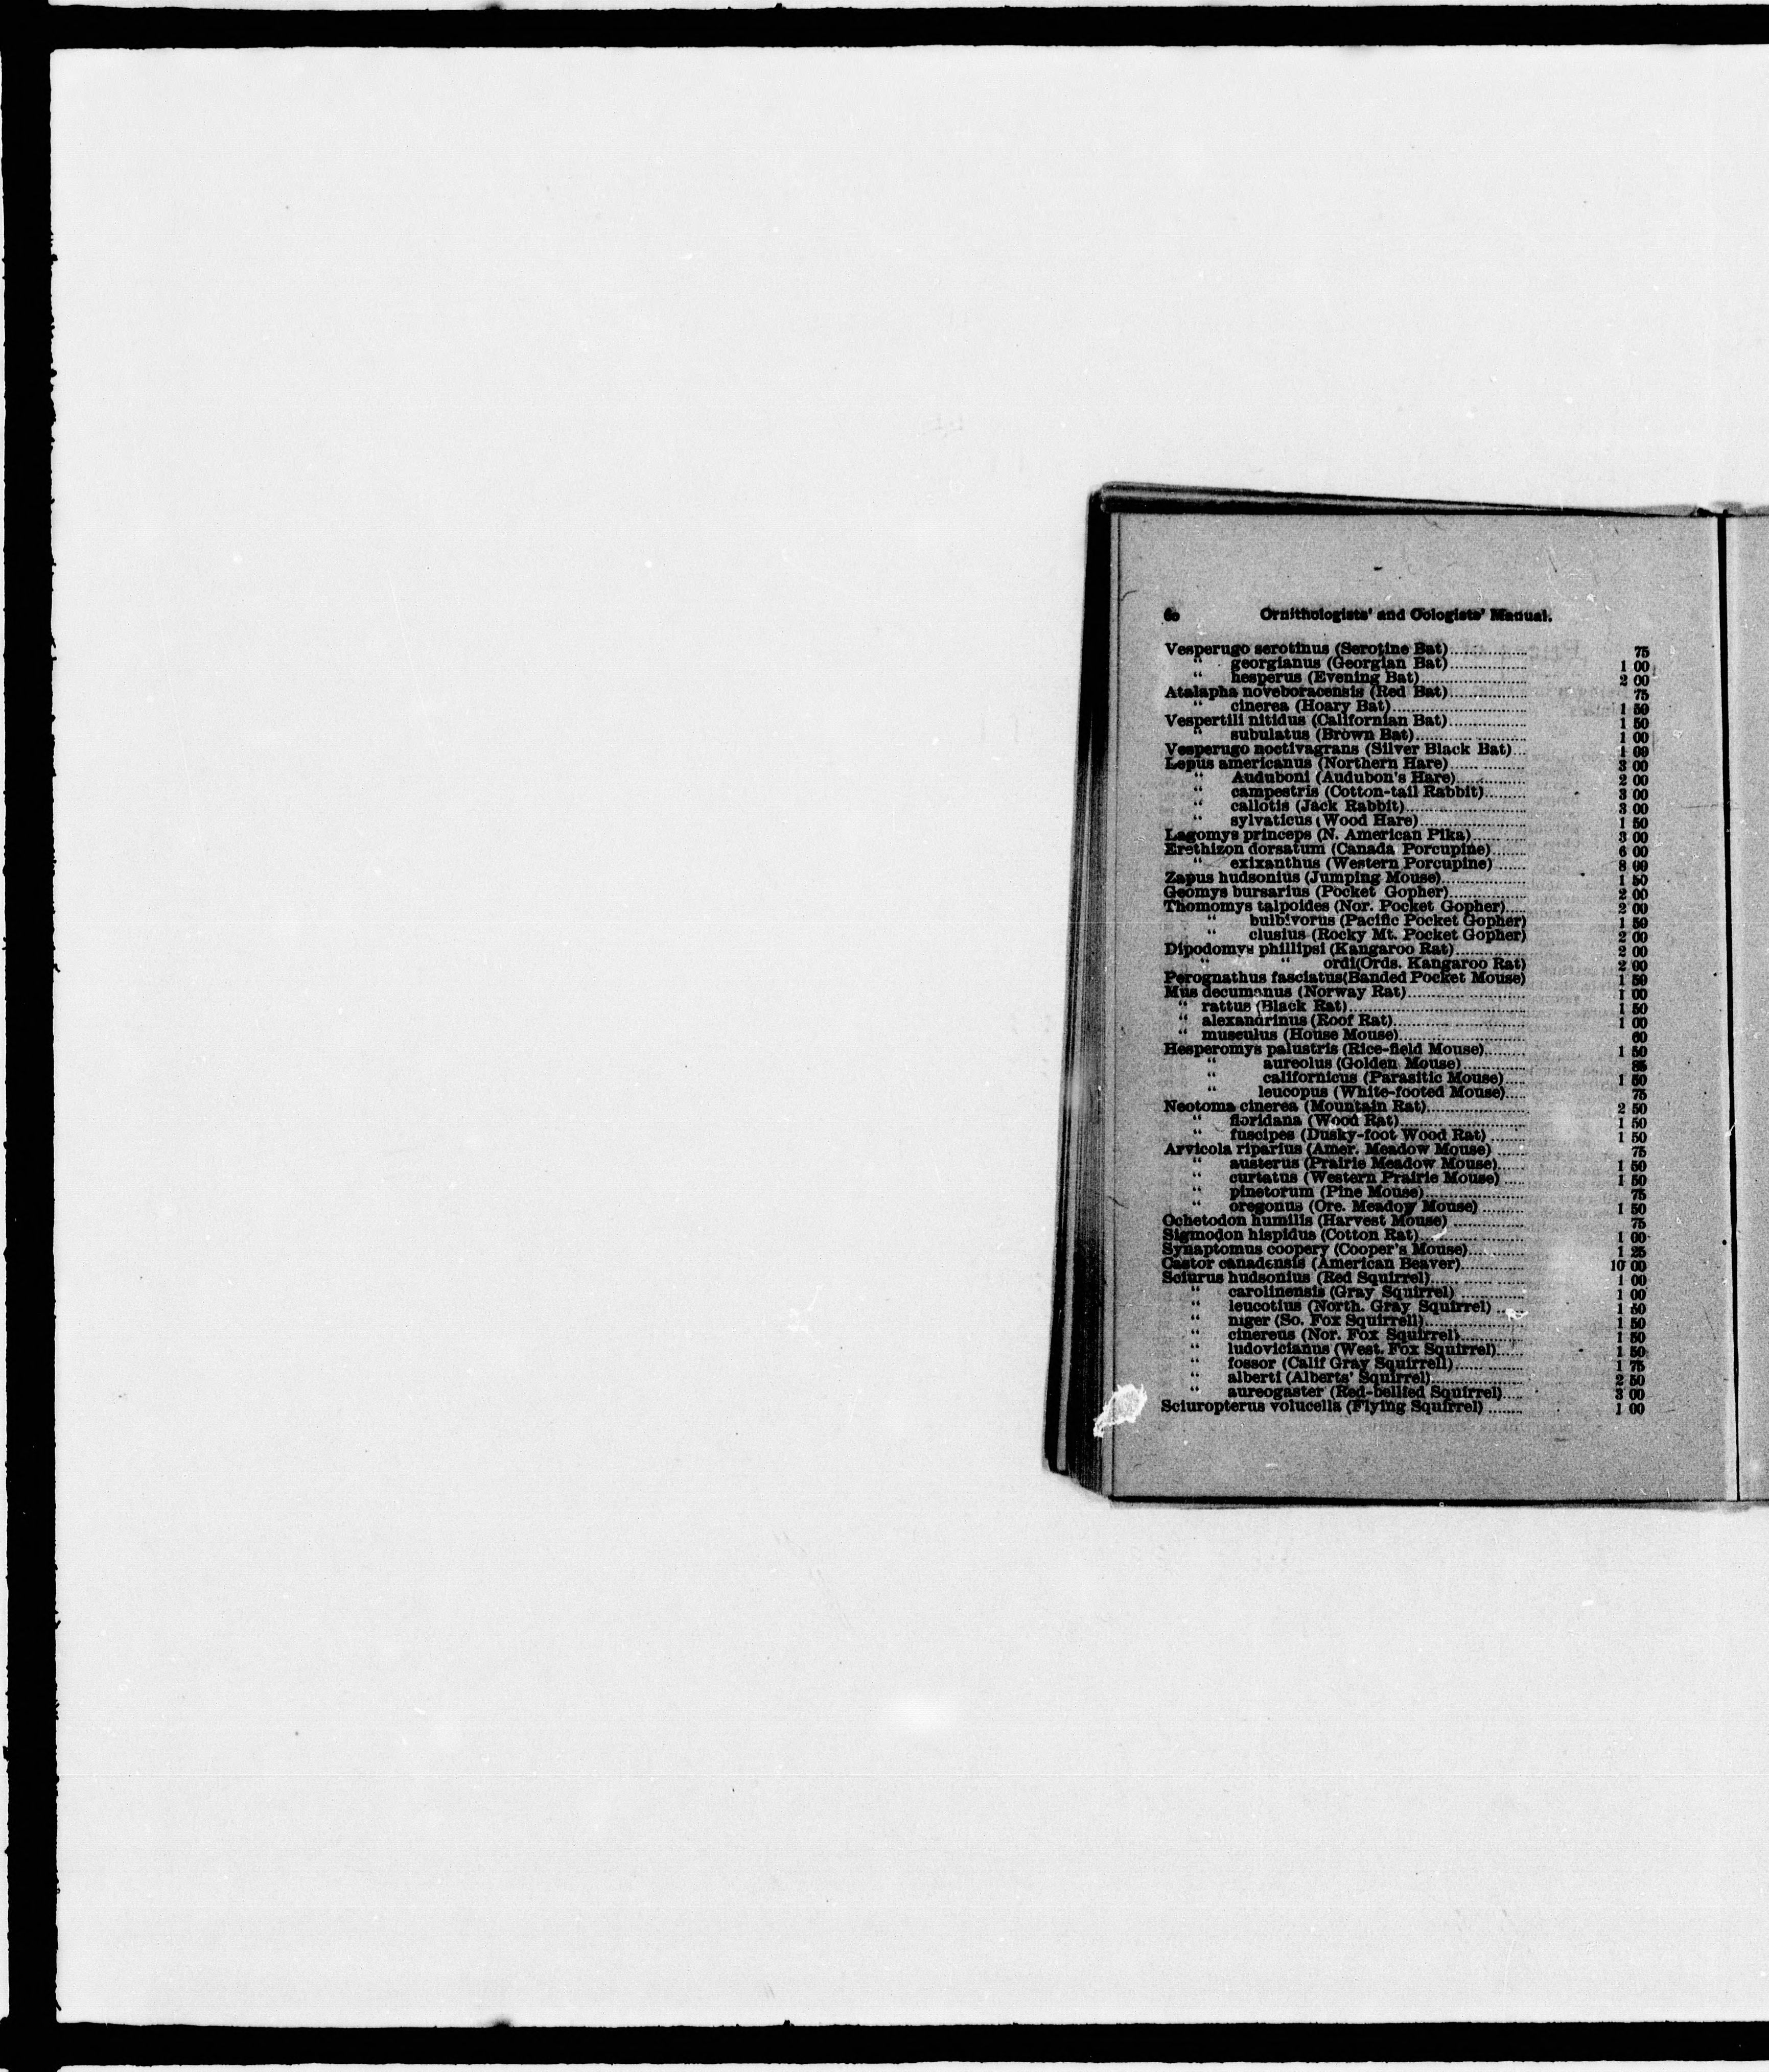 60 Ornithologists' and Oologists' Manual.
Vesperugo serotinus (Serotine Bat).............. 75
" georgianus (Georgian Bat).............. 1 00
" hesperus (Evening Bat).................... 2 00
Atalapha noveboracensis (Red Bat).............. 75
" cinerea (Hoary Bat)......................... 1 50
Vespertili nitidus (Californian Bat).............. 1 50
" subulatus (Brown Bat).................... 1 00
Vesperugo noctivagrans (Silver Black Bat)... 1 00
Lepus americanus (Northern Hare).............. 3 00
" Auduboni (Audubon's Hare)............. 2 00
" campestris (Cotton-tail Rabbit)........ 3 00
" callotis (Jack Rabbit)...................... 3 00
" sylvaticus (Wood Hare).................... 1 50
Lagomys princeps (N. American Pika).......... 3 00
Erethizon dorsatum (Canada Porcupine)....... 6 00
" exixanthus (Western Porcupine)...... 8 00
Zapus hudsonius (Jumping Mouse)................ 1 50
Geomys bursarius (Pocket Gopher).............. 2 00
Thomomys talpoides (Nor. Pocket Gopher).... 2 00
" bulbivorus (Pacific Pocket Gopher) 1 50
" clusius (Rocky Mt. Pocket Gopher) 2 00
Dipodomys phillipsi (Kangaroo Rat)............. 2 00
" " ordi(Ords. Kangaroo Rat) 2 00
Perognathus fasciatus(Banded Pocket Mouse) 1 50
Mus decumanus (Norway Rat)...................... 1 00
" rattus (Black Rat)................................ 1 50
" alexandrinus (Roof Rat)........................ 1 00
" musculus (House Mouse)....................... 60
Hesperomys palustris (Rice-field Mouse)........ 1 50
" aureolus (Golden Mouse)............ 85
" californicus (Parasitic Mouse).... 1 50
" leucopus (White-footed Mouse).... 75
Neotoma cinerea (Mountain Rat)................... 2 50
" floridana (Wood Rat)....................... 1 50
" fuscipes (Dusky-foot Wood Rat) ....... 1 50
Arvicola riparius (Amer. Meadow Mouse) ...... 75
" austerus (Prairie Meadow Mouse)..... 1 50
" curtatus (Western Prairie Mouse) .... 1 50
" pinetorum (Pine Mouse)................... 75
" oregonus (Ore. Meadow Mouse) ........ 1 50
Ochetodon humilis (Harvest Mouse) ............. 75
Sigmodon hispidus (Cotton Rat).................... 1 00
Synaptomus coopery (Cooper's Mouse)........... 1 25
Castor canadensis (American Beaver)............ 10 00
Sciurus hudsonius (Red Squirrel).................. 1 00
" carolinensis (Gray Squirrel) ............ 1 00
" leucotius (North. Gray Squirrel) ...... 1 50
" niger (So. Fox Squirrell).................. 1 50
" cinereus (Nor. Fox Squirrel)............ 1 50
" ludovicianus (West. Fox Squirrel)..... 1 50
" fossor (Calif Gray Squirrell)............. 1 75
" alberti (Alberts' Squirrel)................. 2 50
" aureogaster (Red-bellied Squirrel).... 3 00
Sciuropterus volucella (Flying Squirrel) ....... 1 00